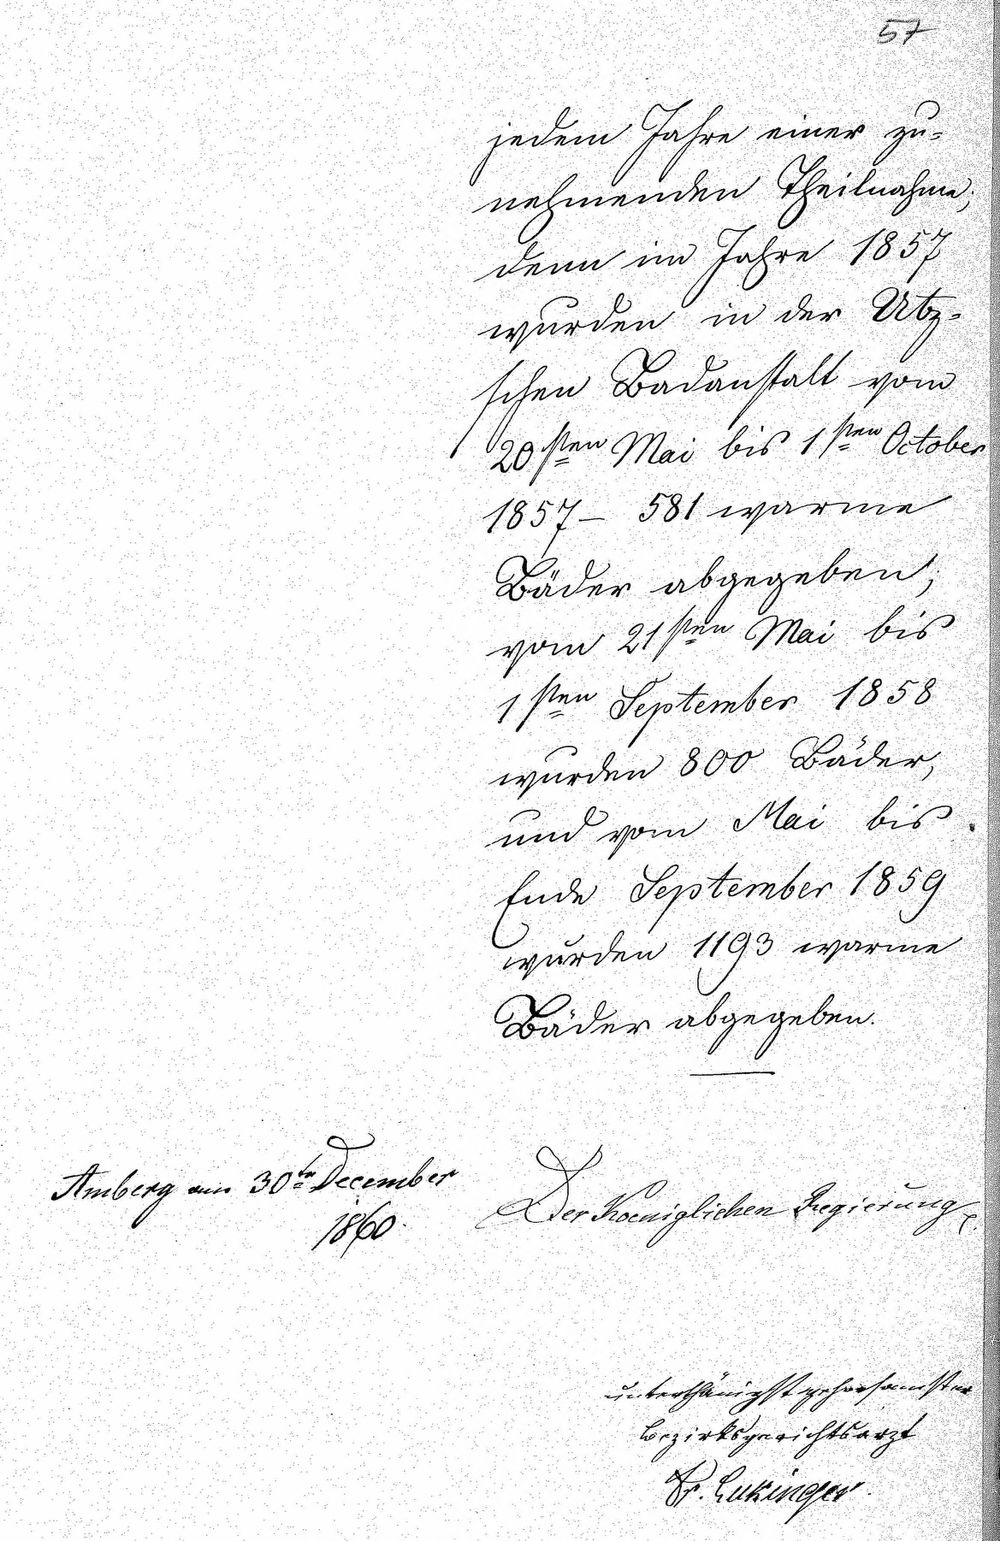 57
jedem Jahre einer zu-
nehmenden Theilnahme;
denn im Jahre 1857
wurden in der Utz-
schen Badanstalt vom
20sten Mai bis 1sten October
1857 – 581 warme
Bäder abgegeben;
vom 21sten Mai bis
1sten September 1858
wurden 800 Bäder,
und vom Mai bis
Ende September 1859
wurden 1193 warme
Bäder abgegeben.
Amberg am 30ten December
1860.
Der Koeniglichen Regierung
unterthänigst gehorsamster
Bezirksgerichtsarzt
Dr.